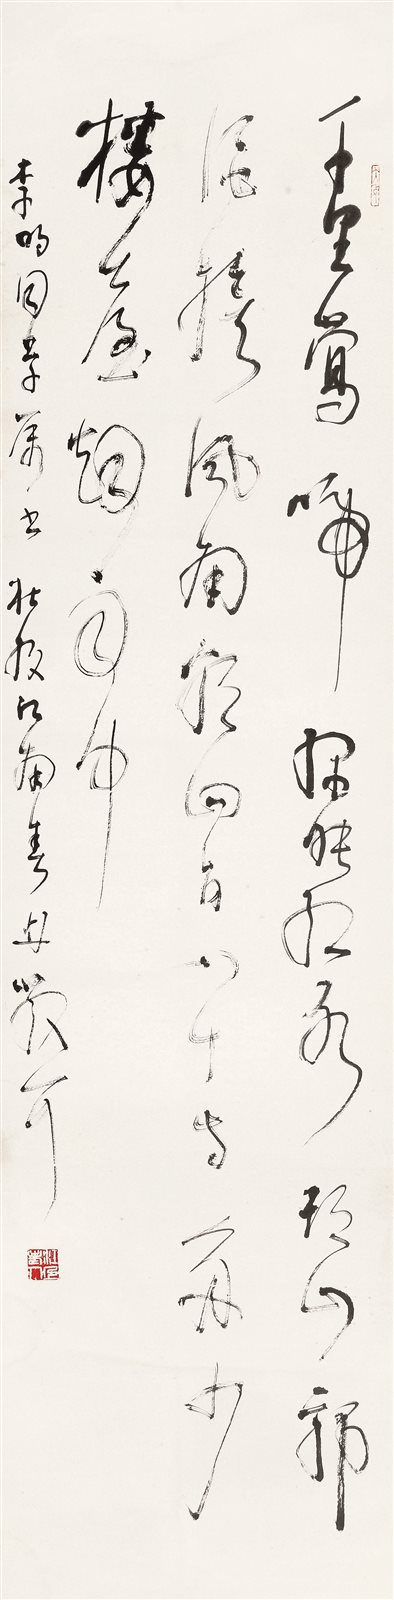 千里鶯啼绿映红水邨山郭
酒旗風南朝四百八十寺多少
樓臺烟雨中
李明同学属书 杜牧江南春